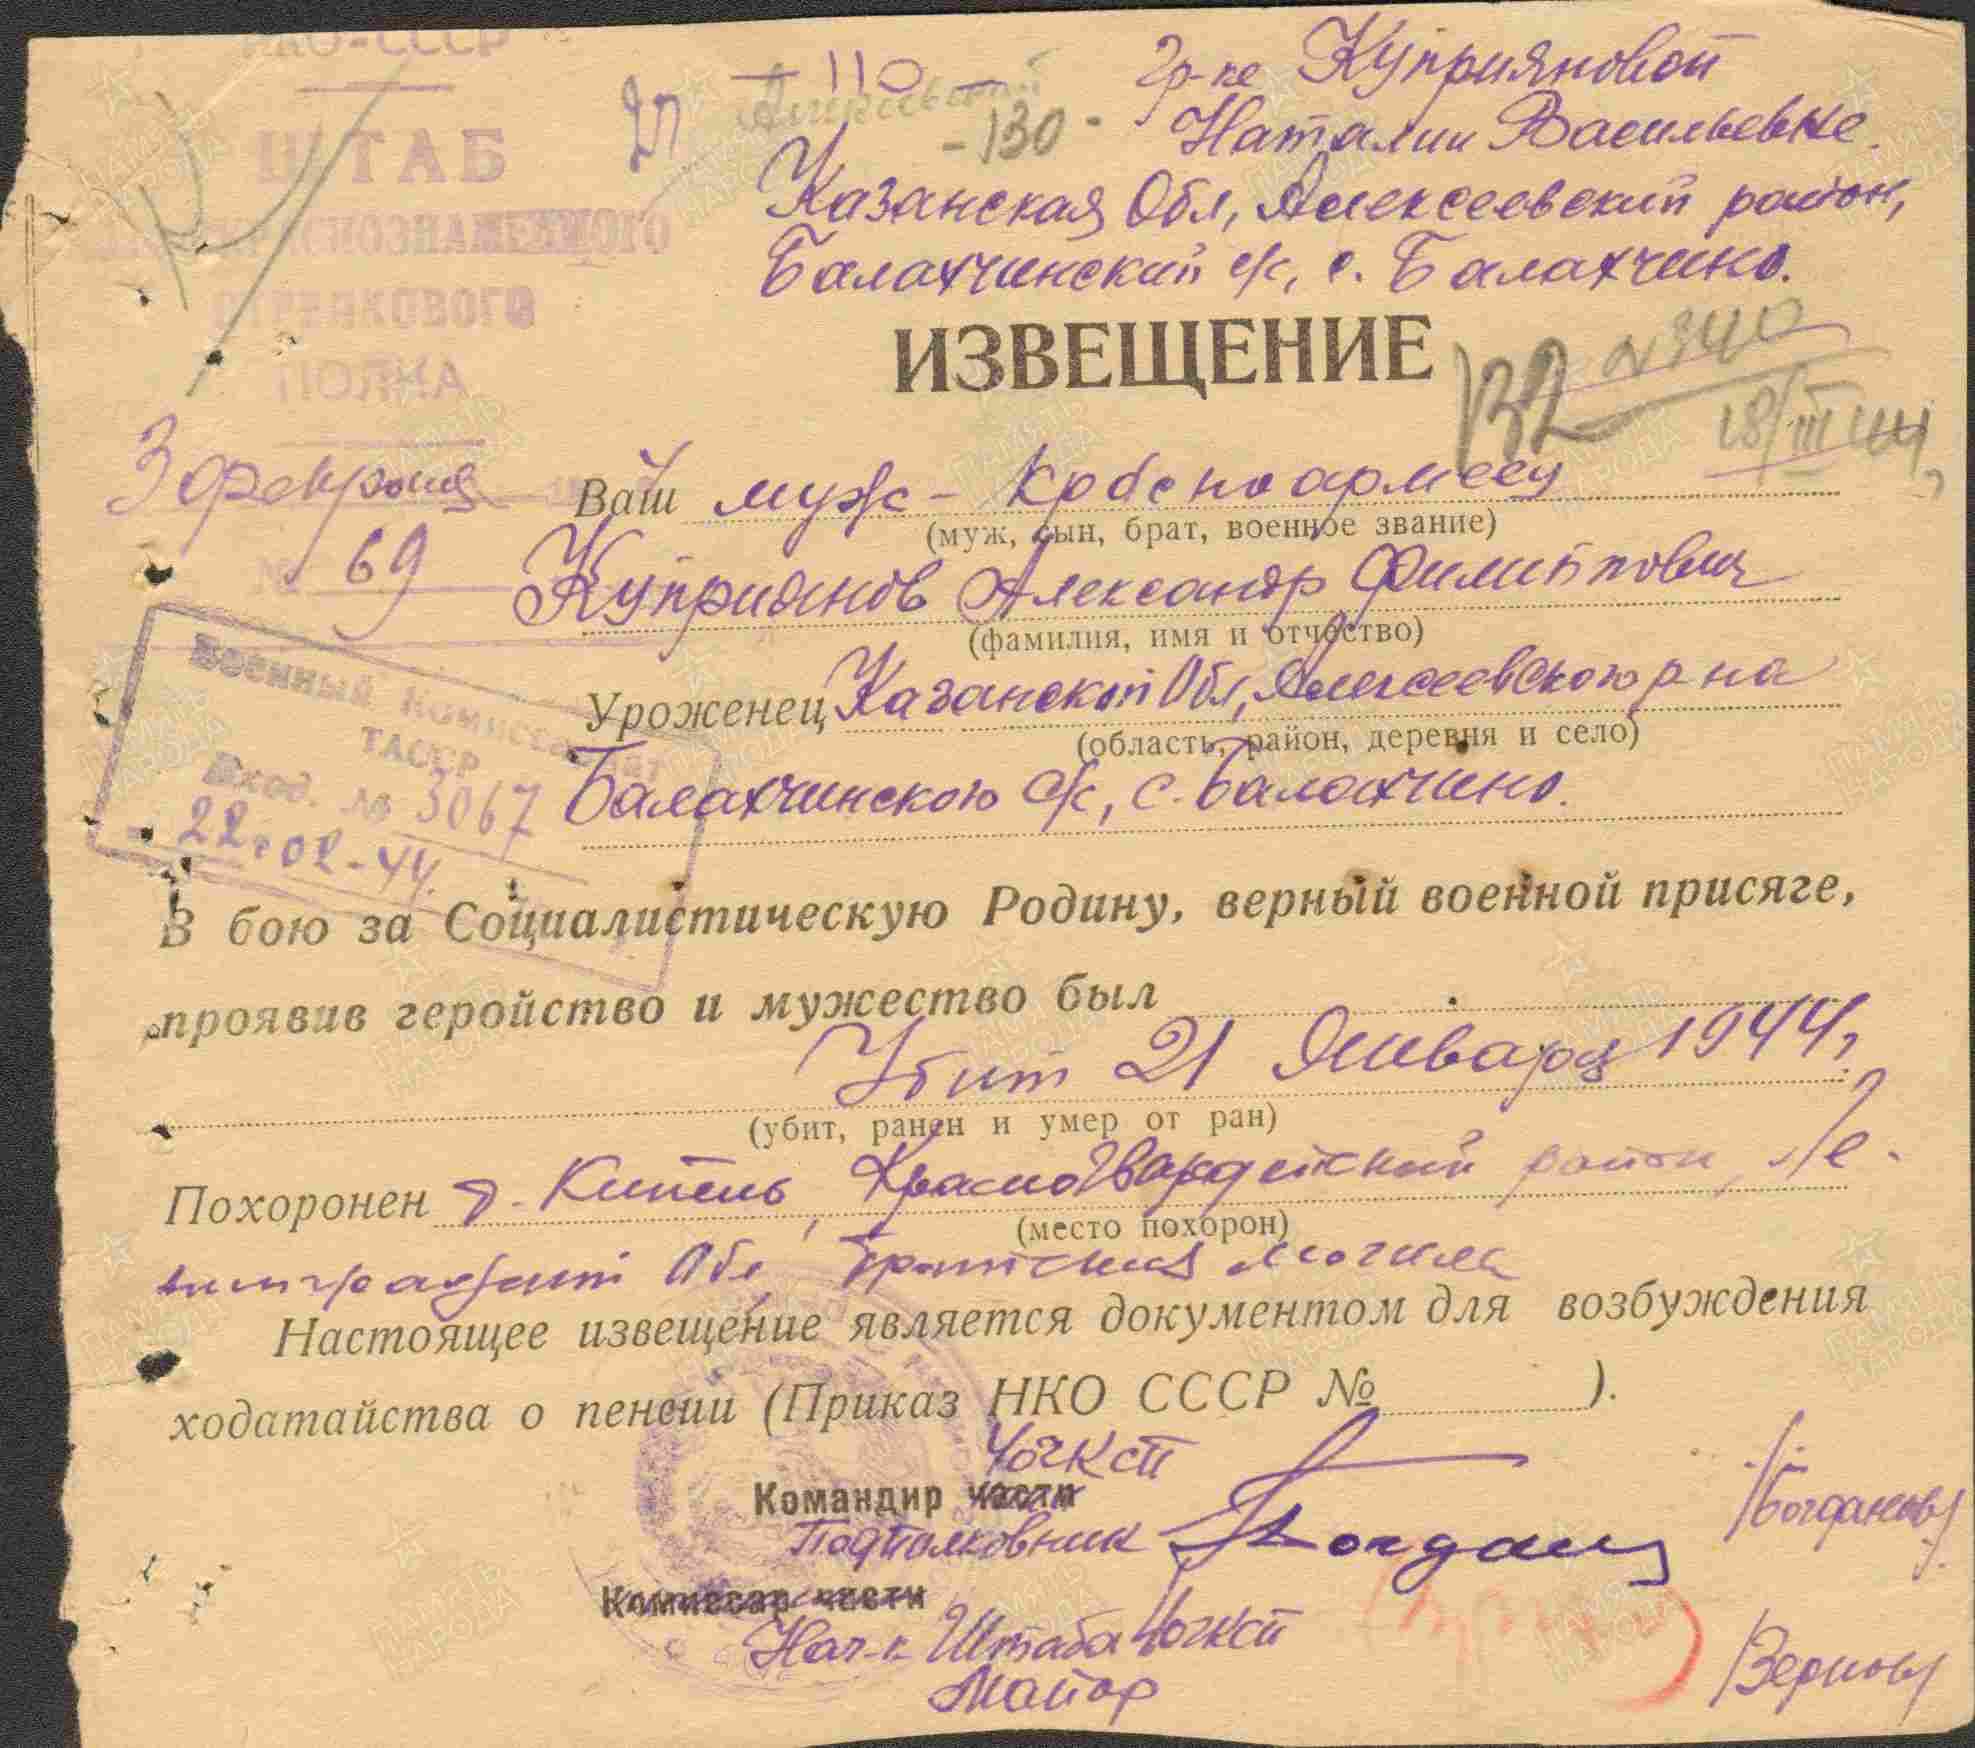 НКО-СССР
ШТАБ
КРАСНОЗНАМЕННОГО
СТРЕЛКОВОГО
ПОЛКА
3 февраля
№ 69
- 110 -
- 130 -
Гр-ке Куприяновой
Наталии Васильевне.
Казанская Обл, Алексеевский район,
Балахчинский с/с, с. Балахчино.
ИЗВЕЩЕНИЕ
132
18/III 44
Ваш муж - Красноармеец
(муж, сын, брат, военное звание)
Куприянов Александр Филиппович
(фамилия, имя и отчество)
Уроженец Казанской Обл, Алексеевского р на
(область, район, деревня и село)
Балахчинского с/с, с. Балахчино.
Военный Комиссариат
ТАССР
Вход. № 3067
22-02-44.
В бою за Социалистическую Родину, верный военной присяге,
проявив геройство и мужество был
Убит 21 Января 1944 г,
(убит, ранен и умер от ран)
Похоронен д. Кипень, Красногвардейский район, Ле-
(место похорон)
нинградской Обл, Братская могила
Настоящее извещение является документом для возбуждения
ходатайства о пенсии (Приказ НКО СССР №          ).
Командир части
Подполковник
/Богданов/
Комиссар части
Нач-к Штаба
Майор